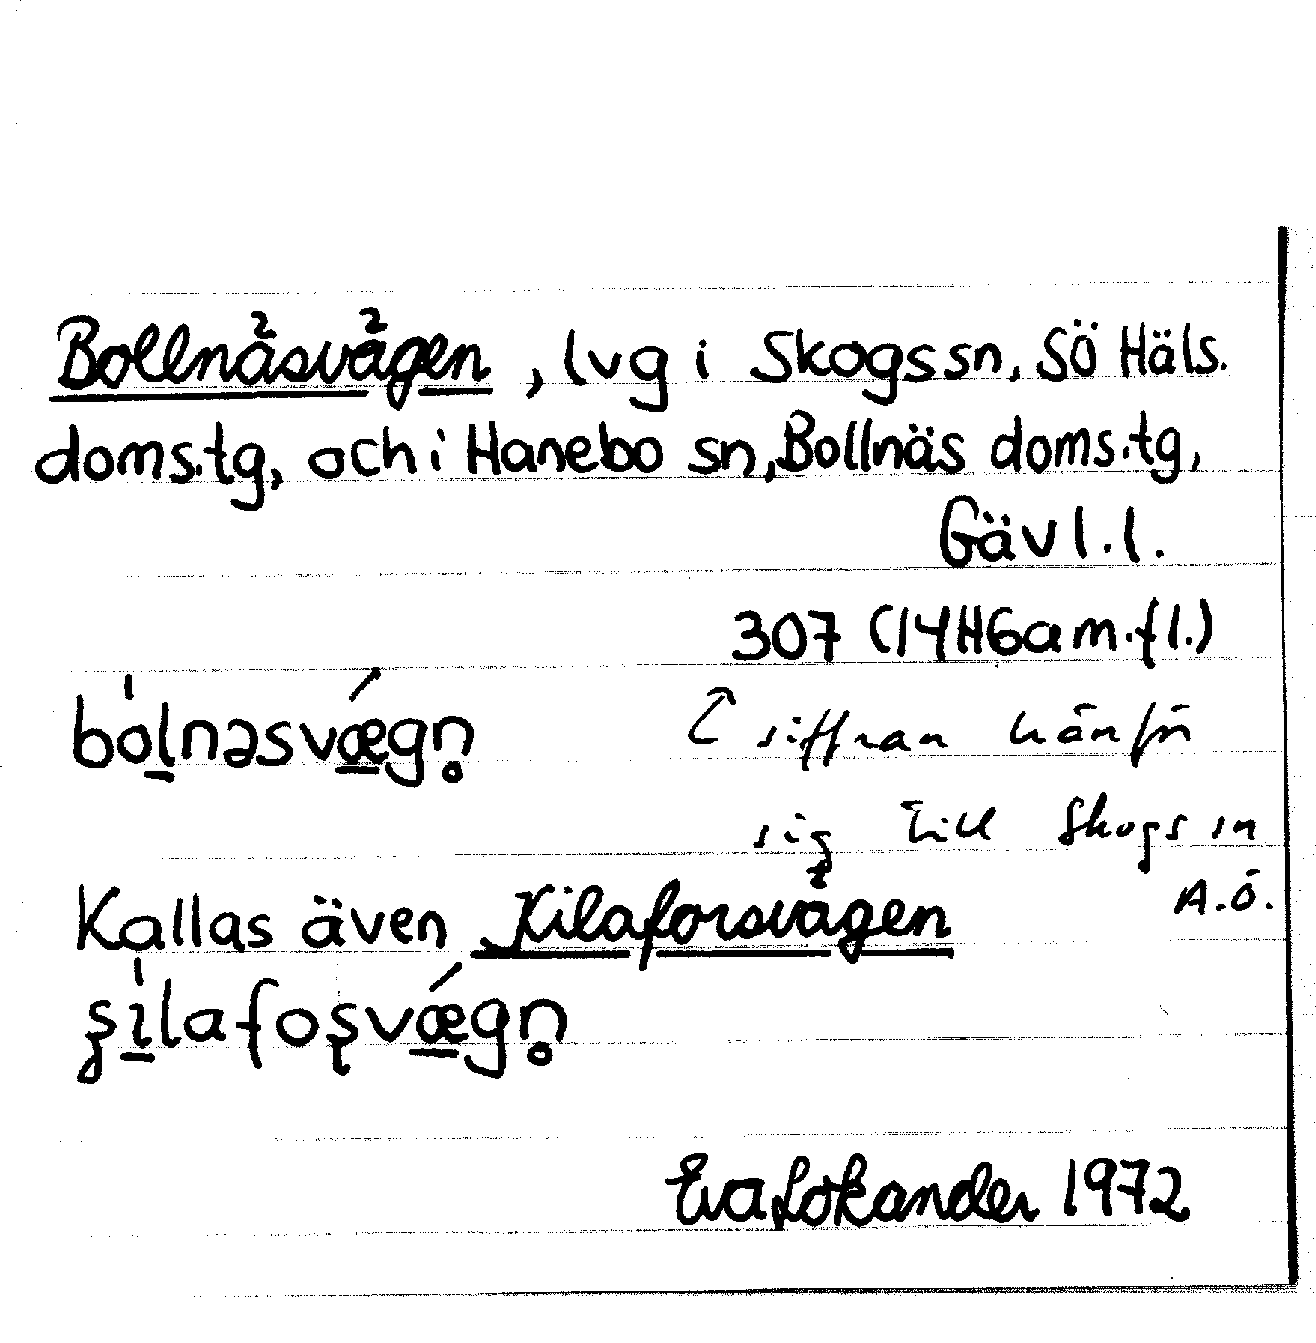 Bollnäsvägen, lvg i Skogs sn, SÖ Häls.
doms.tg, och i Hanebo sn, Bollnäs doms.tg,
Gävl.l.
307 (14H6a m.fl.)
bo̲lnəsvæ̲gn̥
siffran hänför
sig till Skogs sn
A.Ö.
Kallas även Kilaforsvägen
ʂi̲lafoʂvæ̲gn̥
Eva Lökander 1972